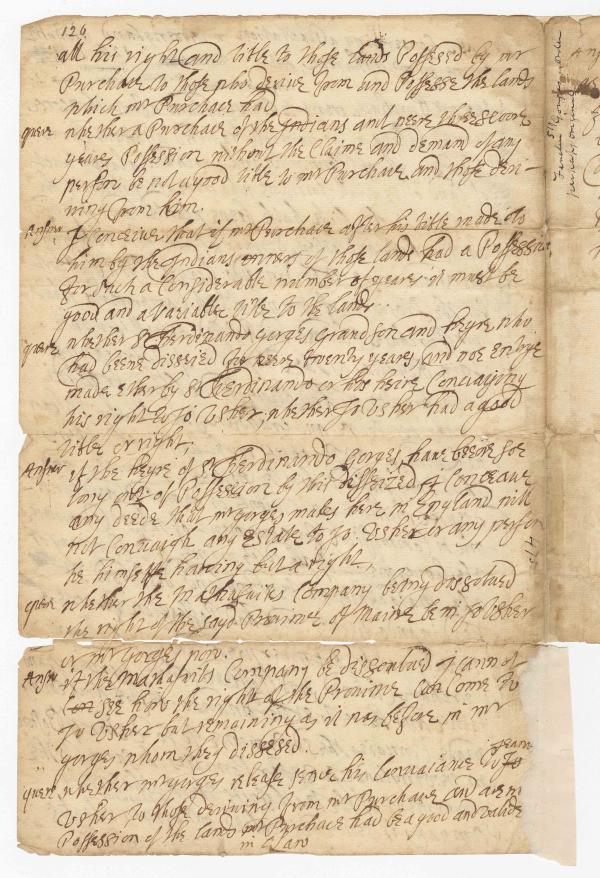 126
all his right and title to those lands Possess'd by mr
Purchace to those who derive from and Possesse the lands
which mr Purchace had
quere whether a Purchace of the Indians and neere threescore
yeares Possession without the Claime and demand of any
person be not a good title to mr Purchace and those deri-
ving from him.
Answr I Conceive that if mr Purchace after his title made to
him by the Indians owners of those lands had a Possession
for such a Considerable number of yeares it must be
good and a title to the lands.
quere whether Sr Ferdinando Gorges Grandson and heyre who
had beene disseied for neere twenty yeares, and noe entrye
made ether by Sr Ferdinando or his heire Convaijing
his right to Jo: Usher, whether Jo Usher had a good
title or right,
Answr if the heyre of Sr Ferdinando Gorges, have beene soe
long out of Possession by this disseized I Conceave
any deede that mr gorges makes here in England will
not Convaigh any Estate to Jo: Usher or any person
he himselfe having but a right,
quere whether the Company being dissolved
the right of the sayd Province of Maine be in Jo Usher
or mr Gorge now.
Answr if the Company be dissolved I cannot
see how the right of the Province Can Come to
Jo Usher but remaining as it was before in mr
gorges whom they dissesed.
quere whether mr gorges release since his Convaiance to Jo
Usher to those deriving from mr Purchace and
Possession of the lands mr Purchace had be a good and valide
in Law